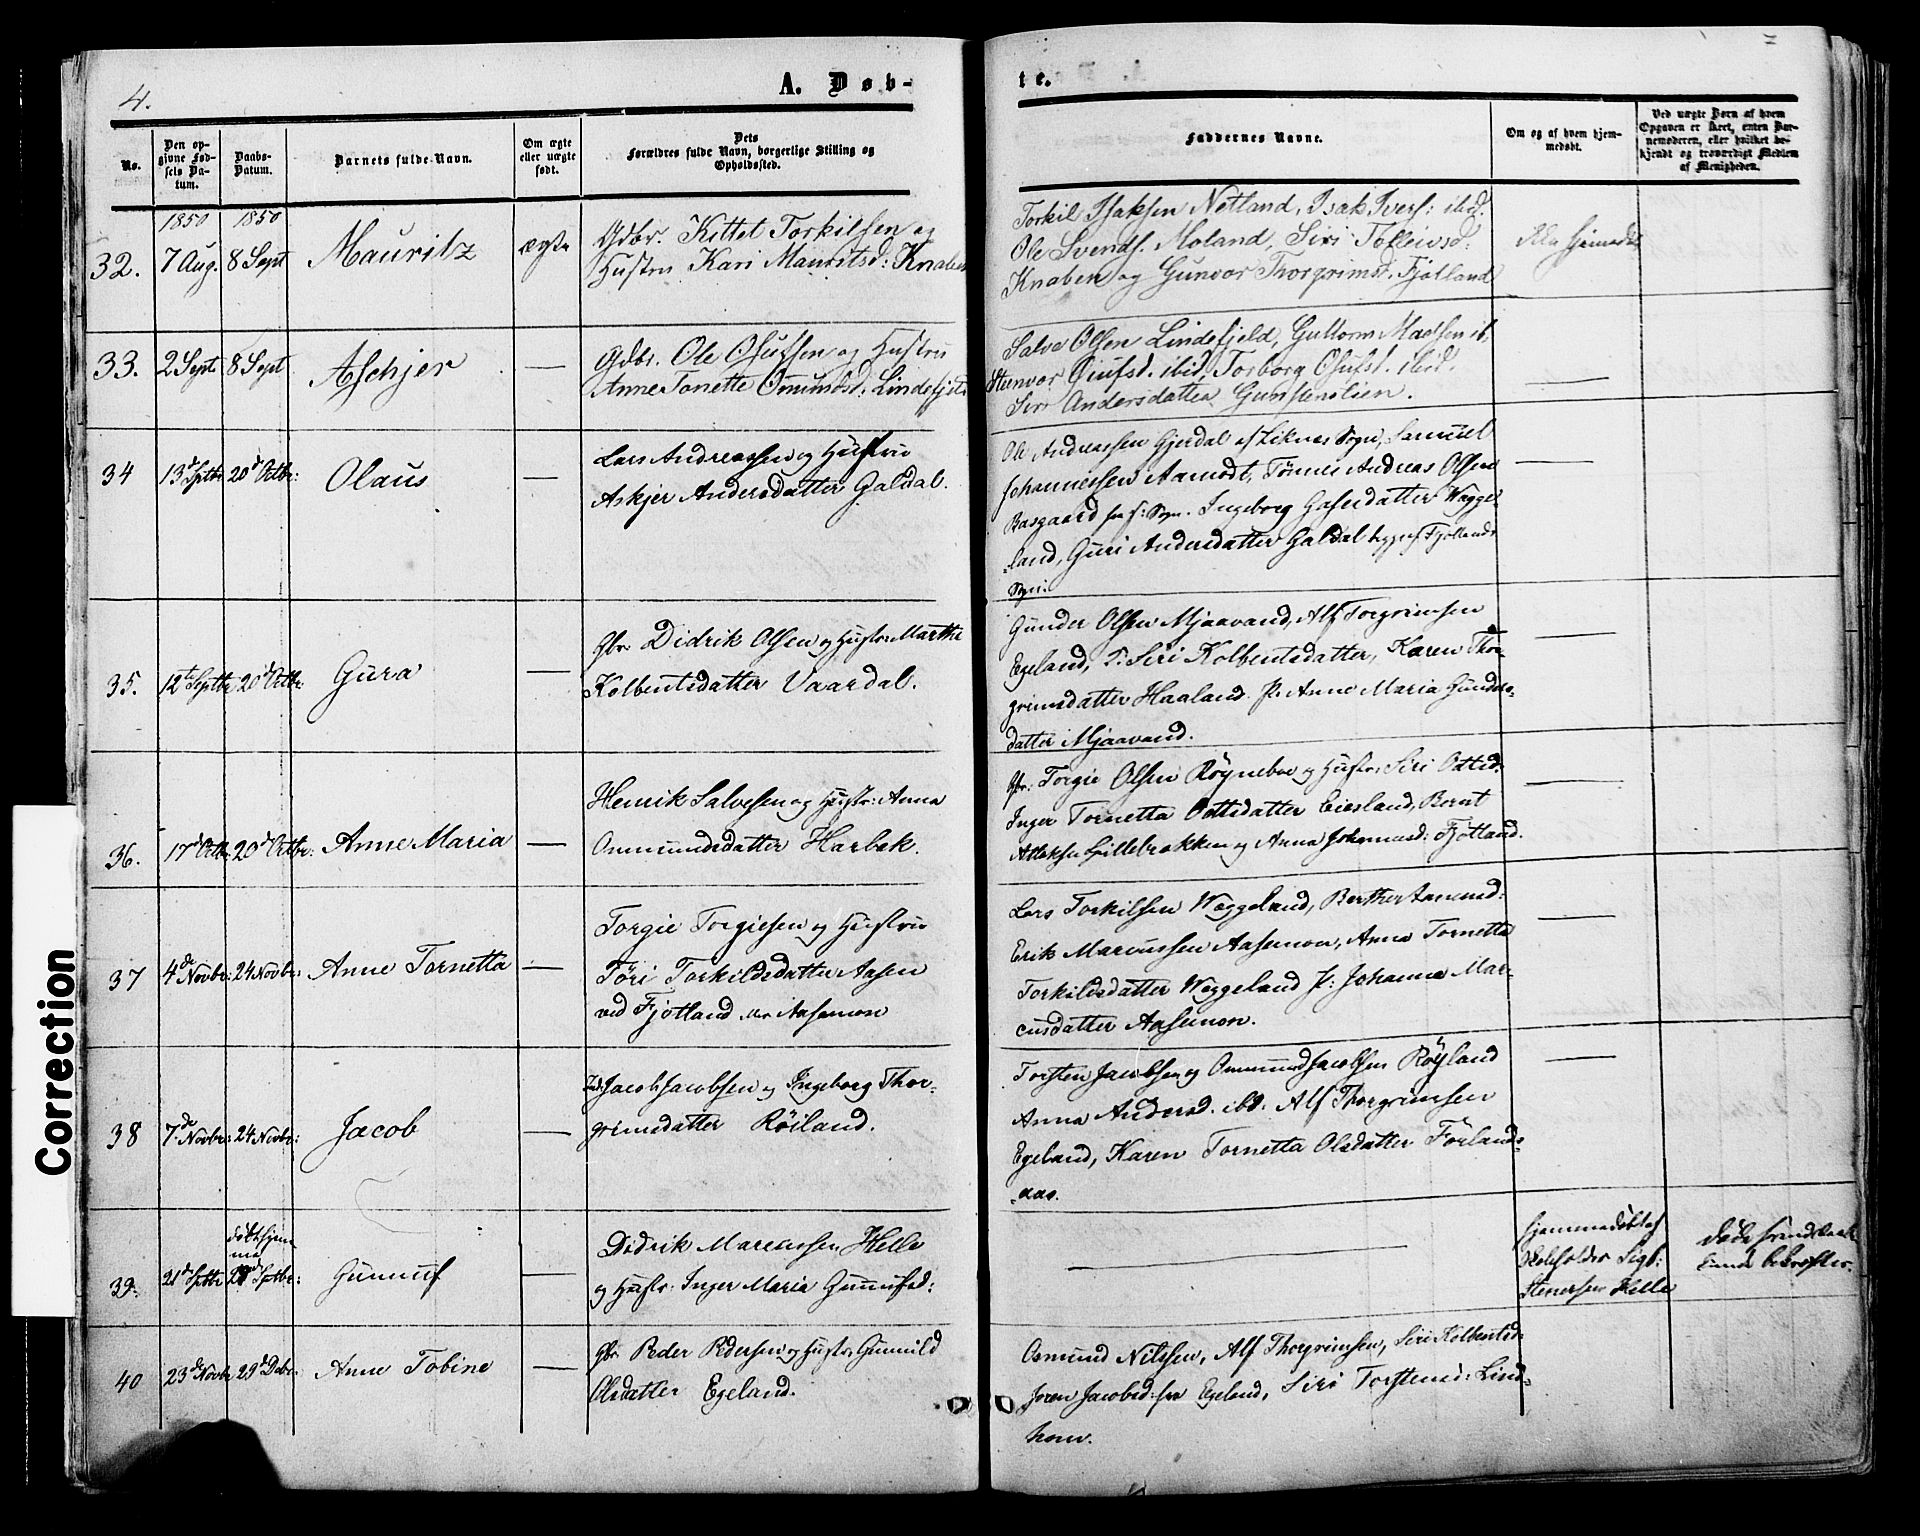 4.
A. Døb-
te.
No.
Den opgivne Fødsels Datum.
Daabs-Datum.
Barnets fulde Navn.
Om ægte eller uægte født.
Dets Forældres fulde Navn, borgerlige Stilling og Opholdssted.
Faddernes Navne.
Om og af hvem hjemmedøbt.
Ved uægte Børn af hvem Opgaven er skeet, enten Barnemoderen, eller hvilket bekjendt og troværdigt Medlem af Menigheden.
1850
1850
32.
7 Aug.
8 Sept
Mauritz
ægte
Gdbr. Kittel Torkilsen og
Hustru Kari Mauritsd: Knaben
Torkil Isaksen Netland, Isak Ivers: ibid.
Ole Svends. Moland, Siri Tolleivsd:
Knaben og Gunvor Thorgrimsd. Fjotland
33.
2 Sept
8 Sept
Aschjer
—
Gdbr. Ole Osufsen og Hustru
Anne Tonette Omundsd: Lindefjeld
Salve Olsen Lindefjeld, Guttorm Madsen ib.
Stenvor Osufsd. ibid, Torborg Osufsd. ibid.
Siri Andersdatter Gunstenlien.
—
34
13de Septbr
20de Octbr:
Olaus
—
Lars Andreassen og Hustru
Askjer Andersdatter Galdal.
Ole Andreassen Gjerdal af Liknes Sogn, Samuel
Johannessen Aamodt, Tønnes Andreas Olsen
Basgaard fra s: Sogn. Ingeborg Datter Wægge-
land, Guri Andersdatter Galdal af Fjotlands
Sogn.
—
35.
12te Septbr
20de Octbr.
Gura
—
Gbr. Didrik Olsen og Hustr: Marthe
Kolbentsdatter Vaardal.
Gunder Olsen Mjaavand, Alf Torgrimsen
Egeland, P: Siri Kolbentsdatter, Karen Thor-
grimsdatter Haaland P. Anne Maria Gunders-
datter Mjaavand.
—
36.
17de Octbr
20de Octbr:
Anne Maria
—
Henrik Salvesen og Hustr: Anna
Ommundsdatter Harbak.
Gbr: Torgie Olsen Røyneboe og Hustr: Siri Ottesd:
Inger Tornetta Ottesdatter Eiesland, Bernt
Atlaksen Lillebrækken og Anna Johannesd: Fjotland.
—
37
4de Novbr:
24 Novbr:
Anne Tornetta
—
Torgie Torgiesen og Hustru
Tøri Torkildsdatter Aasen
ved Fjotland Aasemon
Lars Torkilsen Wæggeland, Berthe Aanensd:
Erik Marcussen Aasemon, Anna Tornetta
Torkildsdatter Wæggeland P: Johanne Mar-
cusdatter Aasemon.
—
38
7de Novbr:
24 Novbr:
Jacob
—
Jacob Jacobsen og Ingeborg Thor-
grimsdatter Røiland.
Torsten Jacobsen og Ommund Jacobsen Røyland
Anna Andersd. ibd. Alf Thorgrimsen
Egeland, Karen Tornetta Olsdatter Førlands-
aas.
—
39.
21de Septbr
døbt hjemme
Septbr:
Gunnuf
—
Didrik Marcussen Helle
og Hustr. Inger Maria Gunnufsd:
—
hjemmedøbt af
Sigb:
Stenersen Helle
40
23de Novbr
29de Debr.
Anne Tobine
—
Gbr. Peder Pedersen og Hustr. Gunnild
Olsdatter Egeland.
Osmund Nilssen, Alf Thorgrimsen, Siri Kolbentsd.
Joren Jacobsd: fra Egeland, Siri Torstensd: Lind-
hom.
Correction